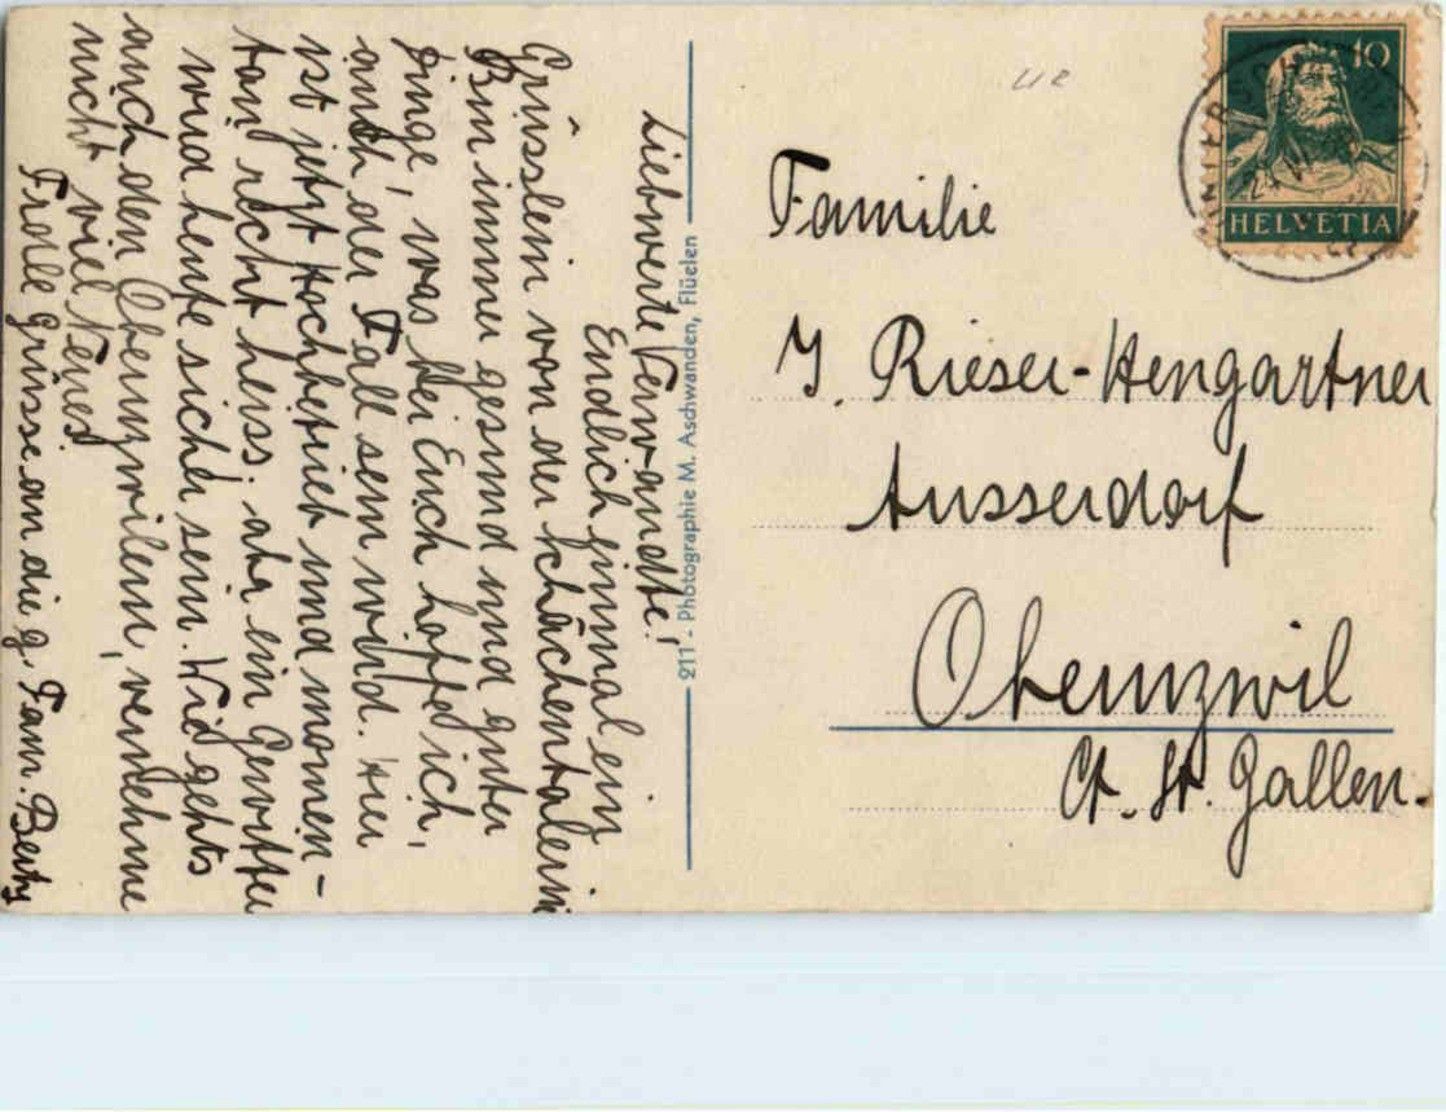 Liebwerte Verwandte!
Endlich einmal ein
Grüsslein von der Schächentalerin
Bin immer gesund und guter
Dinge, was bei Euch hoffe ich,
auch der Fall sein wird. Hier
ist jetzt Hochbetrieb und momen-
tan recht heiss. aber ein Gewitter
wird heute sicher sein. Wie gehts
auch den Oberuzwilern, vernehme
nicht viel Neues
Frohe Grüsse an die g. Fam. Berty
211 - Photographie M. Aschwanden, Flüelen
10
HELVETIA
Familie
J. Rieser-Hengartner
Ausserdorf
Oberuzwil
Ct. St. Gallen.